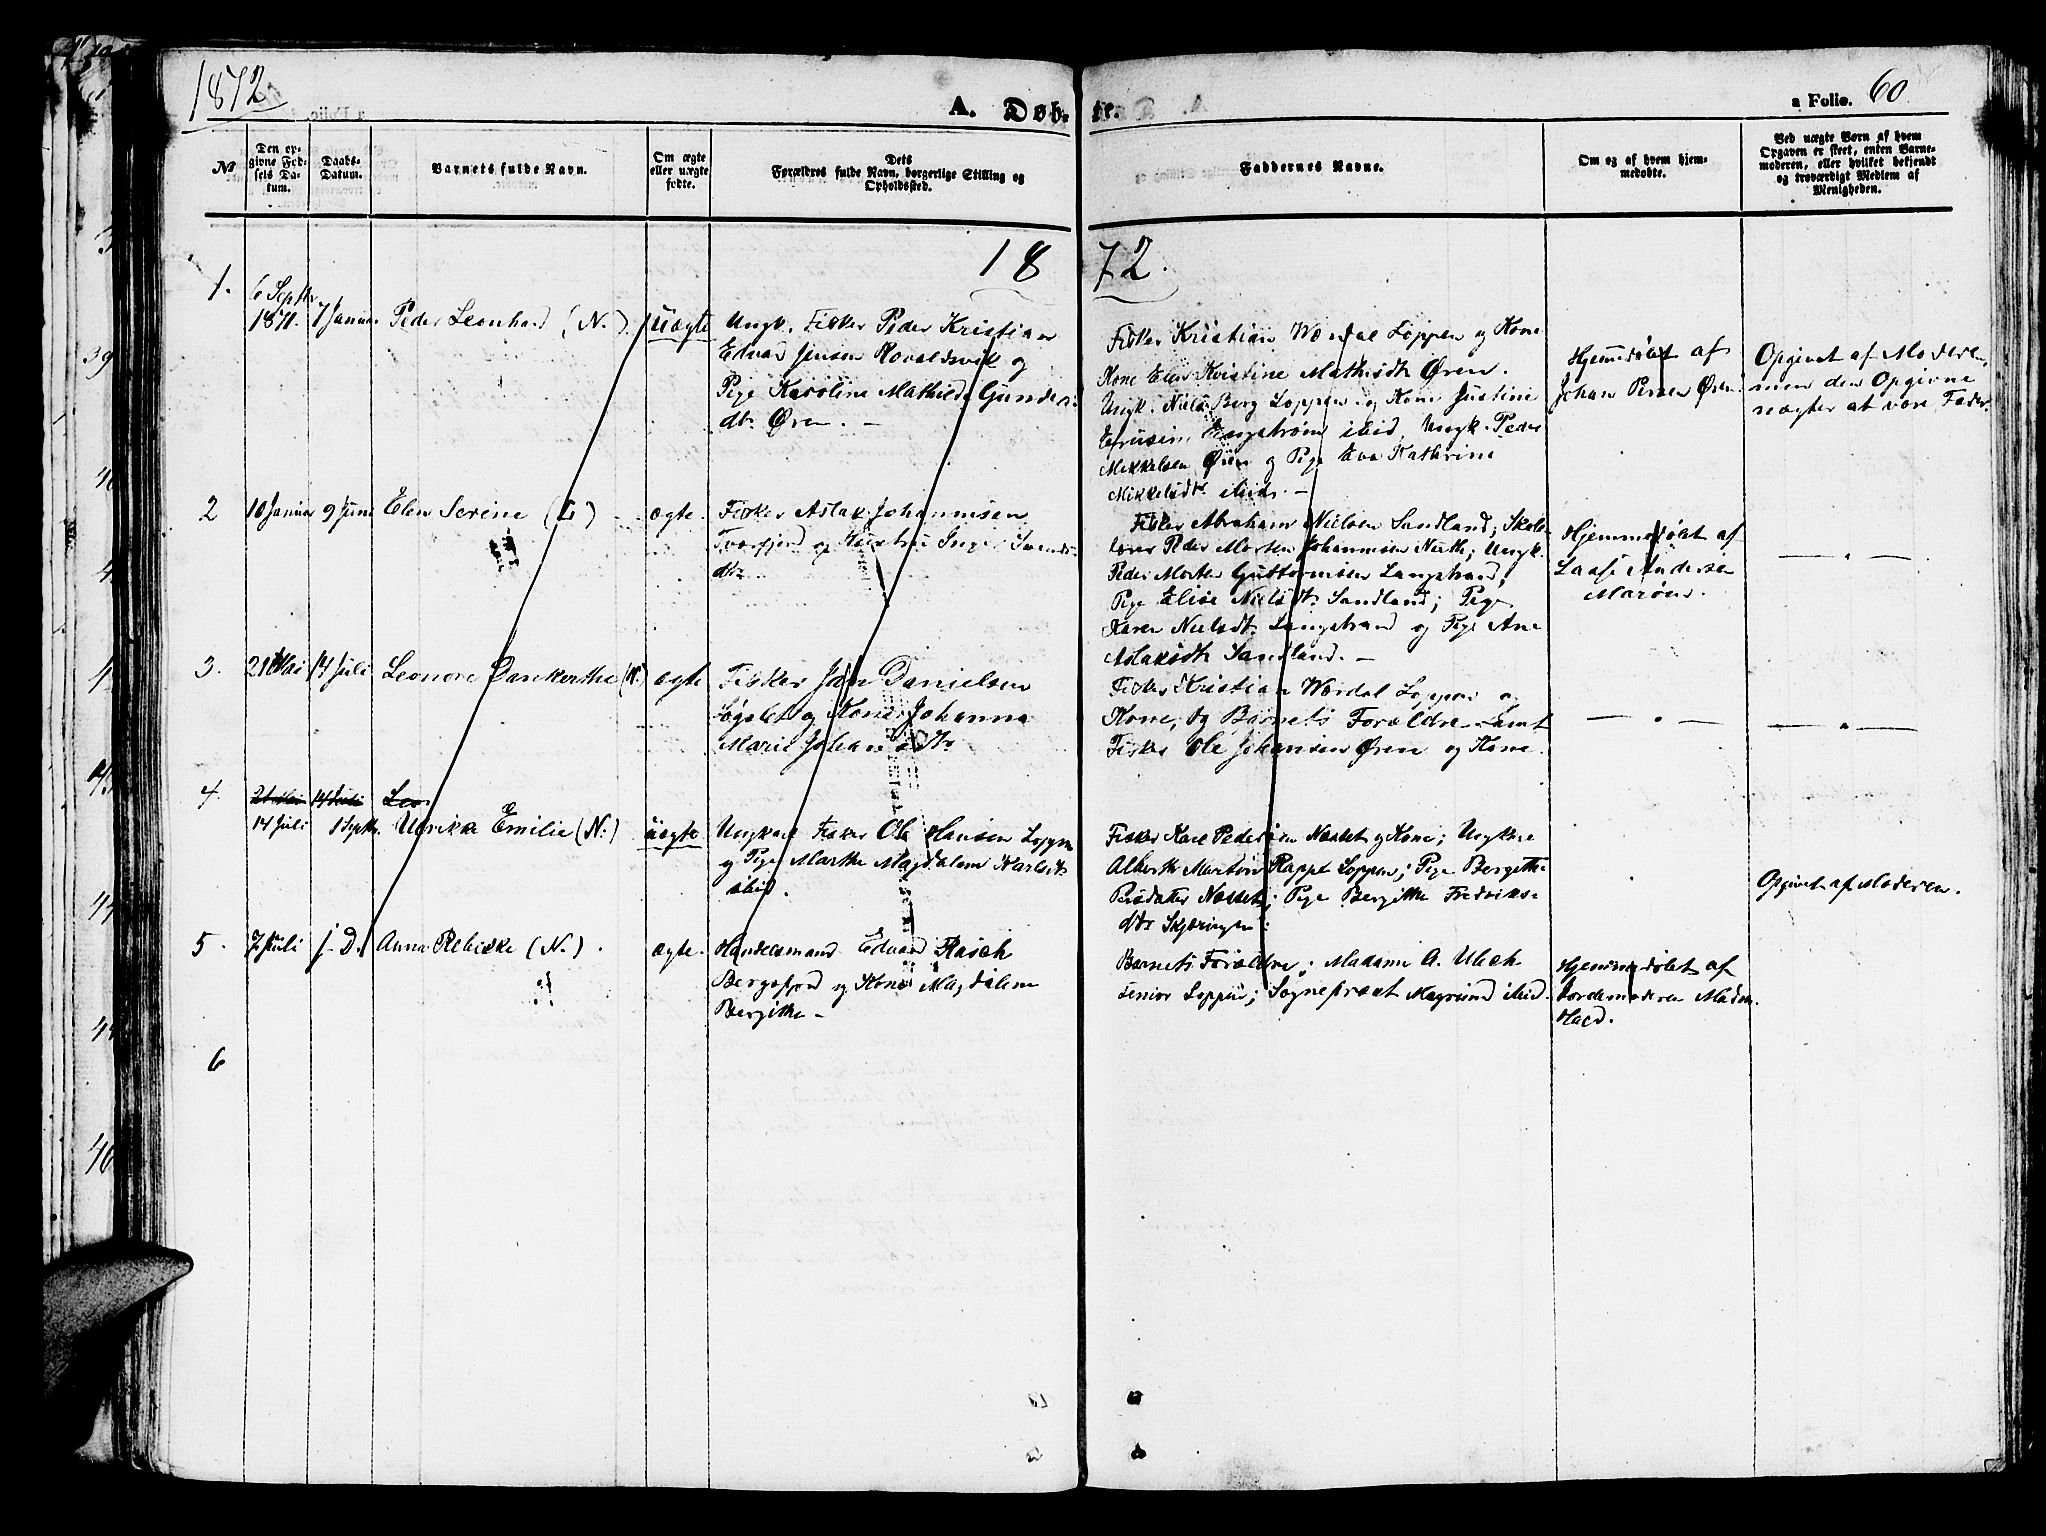 1872
A. Døb-
te.
a Folio. 60
№
Den op-
givne Fød-
sels Da-
tum.
Daabs-
Datum.
Barnets fulde Navn.
Om ægte
eller uægte
fødte.
Dets
Forældres fulde Navn, borgerlige Stilling og
Opholdssted.
Faddernes Navne.
Om og af hvem hjem-
medøbte.
Ved uægte Børn af hvem
Opgaven er skeet, enten Barne-
moderen, eller hvilket bekjendt
og troværdigt Medlem af
Menigheden.
1872.
1.
6 Septbr
1871.
7 Januar
Peder Leonhard (N.)
uægte
Ungk. Fisker Peder Kristian
Edvard Jensen Kovaldsvik og
Pige Karoline Mathilde Gunders
dtr Øren. –
Fisker Kristian Wærdal Loppen og Kone
Kone Elen Kristine Mathisdtr Øren.
Ungk. Niels Berg Loppen og Kone Justine
Engstrøm ibid, Ungk. Peder
Mikkelsen Øren og Pige Eva Kathrine
Mikkelsdtr ibid. –
Hjemmedøbt af
Johan Persen Øren
Opgivet af Moderen,
men den Opgivne
nægter at være Fader.
2
10 Januar
9 Juni
Elen Serine (L)
ægte.
Fisker Aslak Johannisen
Tverfjord og Hustru Inger Svends
dtr
Fisker Abraham Nielsen Sandland; Skole-
lærer Peder Morten Johannesen ; Ungk.
Peder Morten Guttormsen Langstrand;
Pige Elise Nielsdtr Sandland; Pige
Karen Nielsdtr Langstrand og Pige Ane
Aslaksdtr Sandland. –
Hjemmedøbt af
Andersen
Marøen.
– " –
3.
21 Mai
14 Juli
Leonore Dankerthe (N.)
ægte
Fisker Jan Danielsen
Søgelet og Kone Johanna
Marie Johansdtr
Fisker Kristian Wærdal Loppen og
Kone, og Barnets Forældre samt
Fisker Ole Johansen Øren og Kone.
– " –
– " –
4.
21 Mai
14 Juli
Leo
14 Juli
1 Septbr.
Ulrikke Emilie (N.)
uægte
Ungkarl Fisker Ole Hansen Loppen
og Pige Marthe Magdalene Karlsdtr
ibid.
Fisker Karl Pedersen Næsset og Kone; Ungkarl
Alberth Martin Rappe Loppen; Pige Bergithe
Persdatter Næsset; Pige Bergithe Fredriks-
dtr Skjæringen.
Opgivet af Moderen.
5.
7 Juli
j. D.
Anna Rebekke (N.)
ægte.
Handelsmand Edvard Rasch
Bergsfjord og Kone Magdalene
Bergithe –
Barnets Forældre; Madame A. Ulich
senior Loppen; Sognepræst Magrund ibid.
Hjemmedøbt af
Jordemoderen Madm.
6